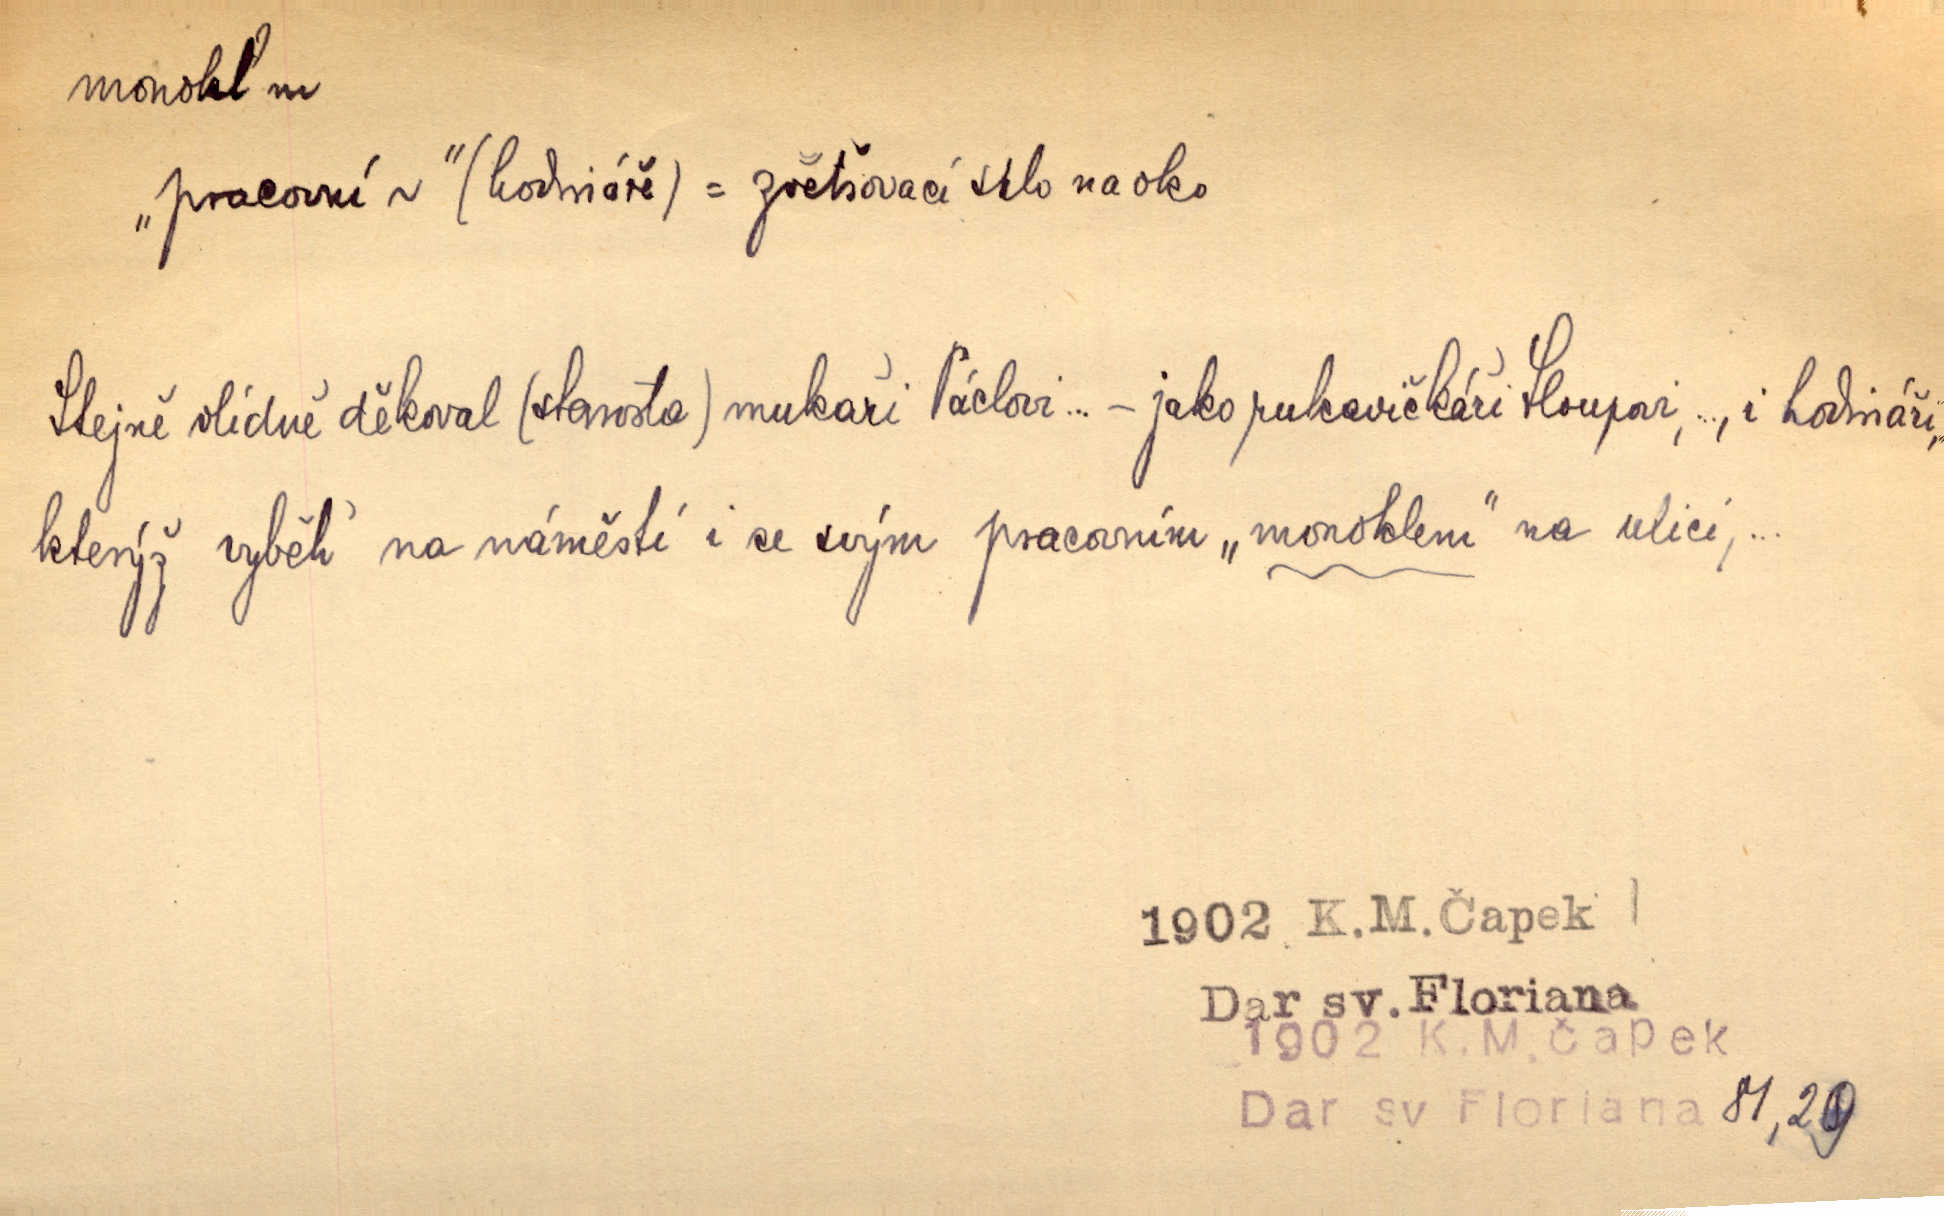 monokl m
„pracovní ~" (hodináře) = zvětšovací sklo na oko
Stejně vlídně děkoval (starosta) mukaři Páclovi... – jako rukavičkáři Sloupovi, ..., i hodináři,
kterýž vyběh' na náměstí i se svým pracovním „monoklem" na ulici, ...
1902 K.M.Čapek
Dar sv.Floriana
1902 K.M.Čapek
Dar sv Floriana 81,29